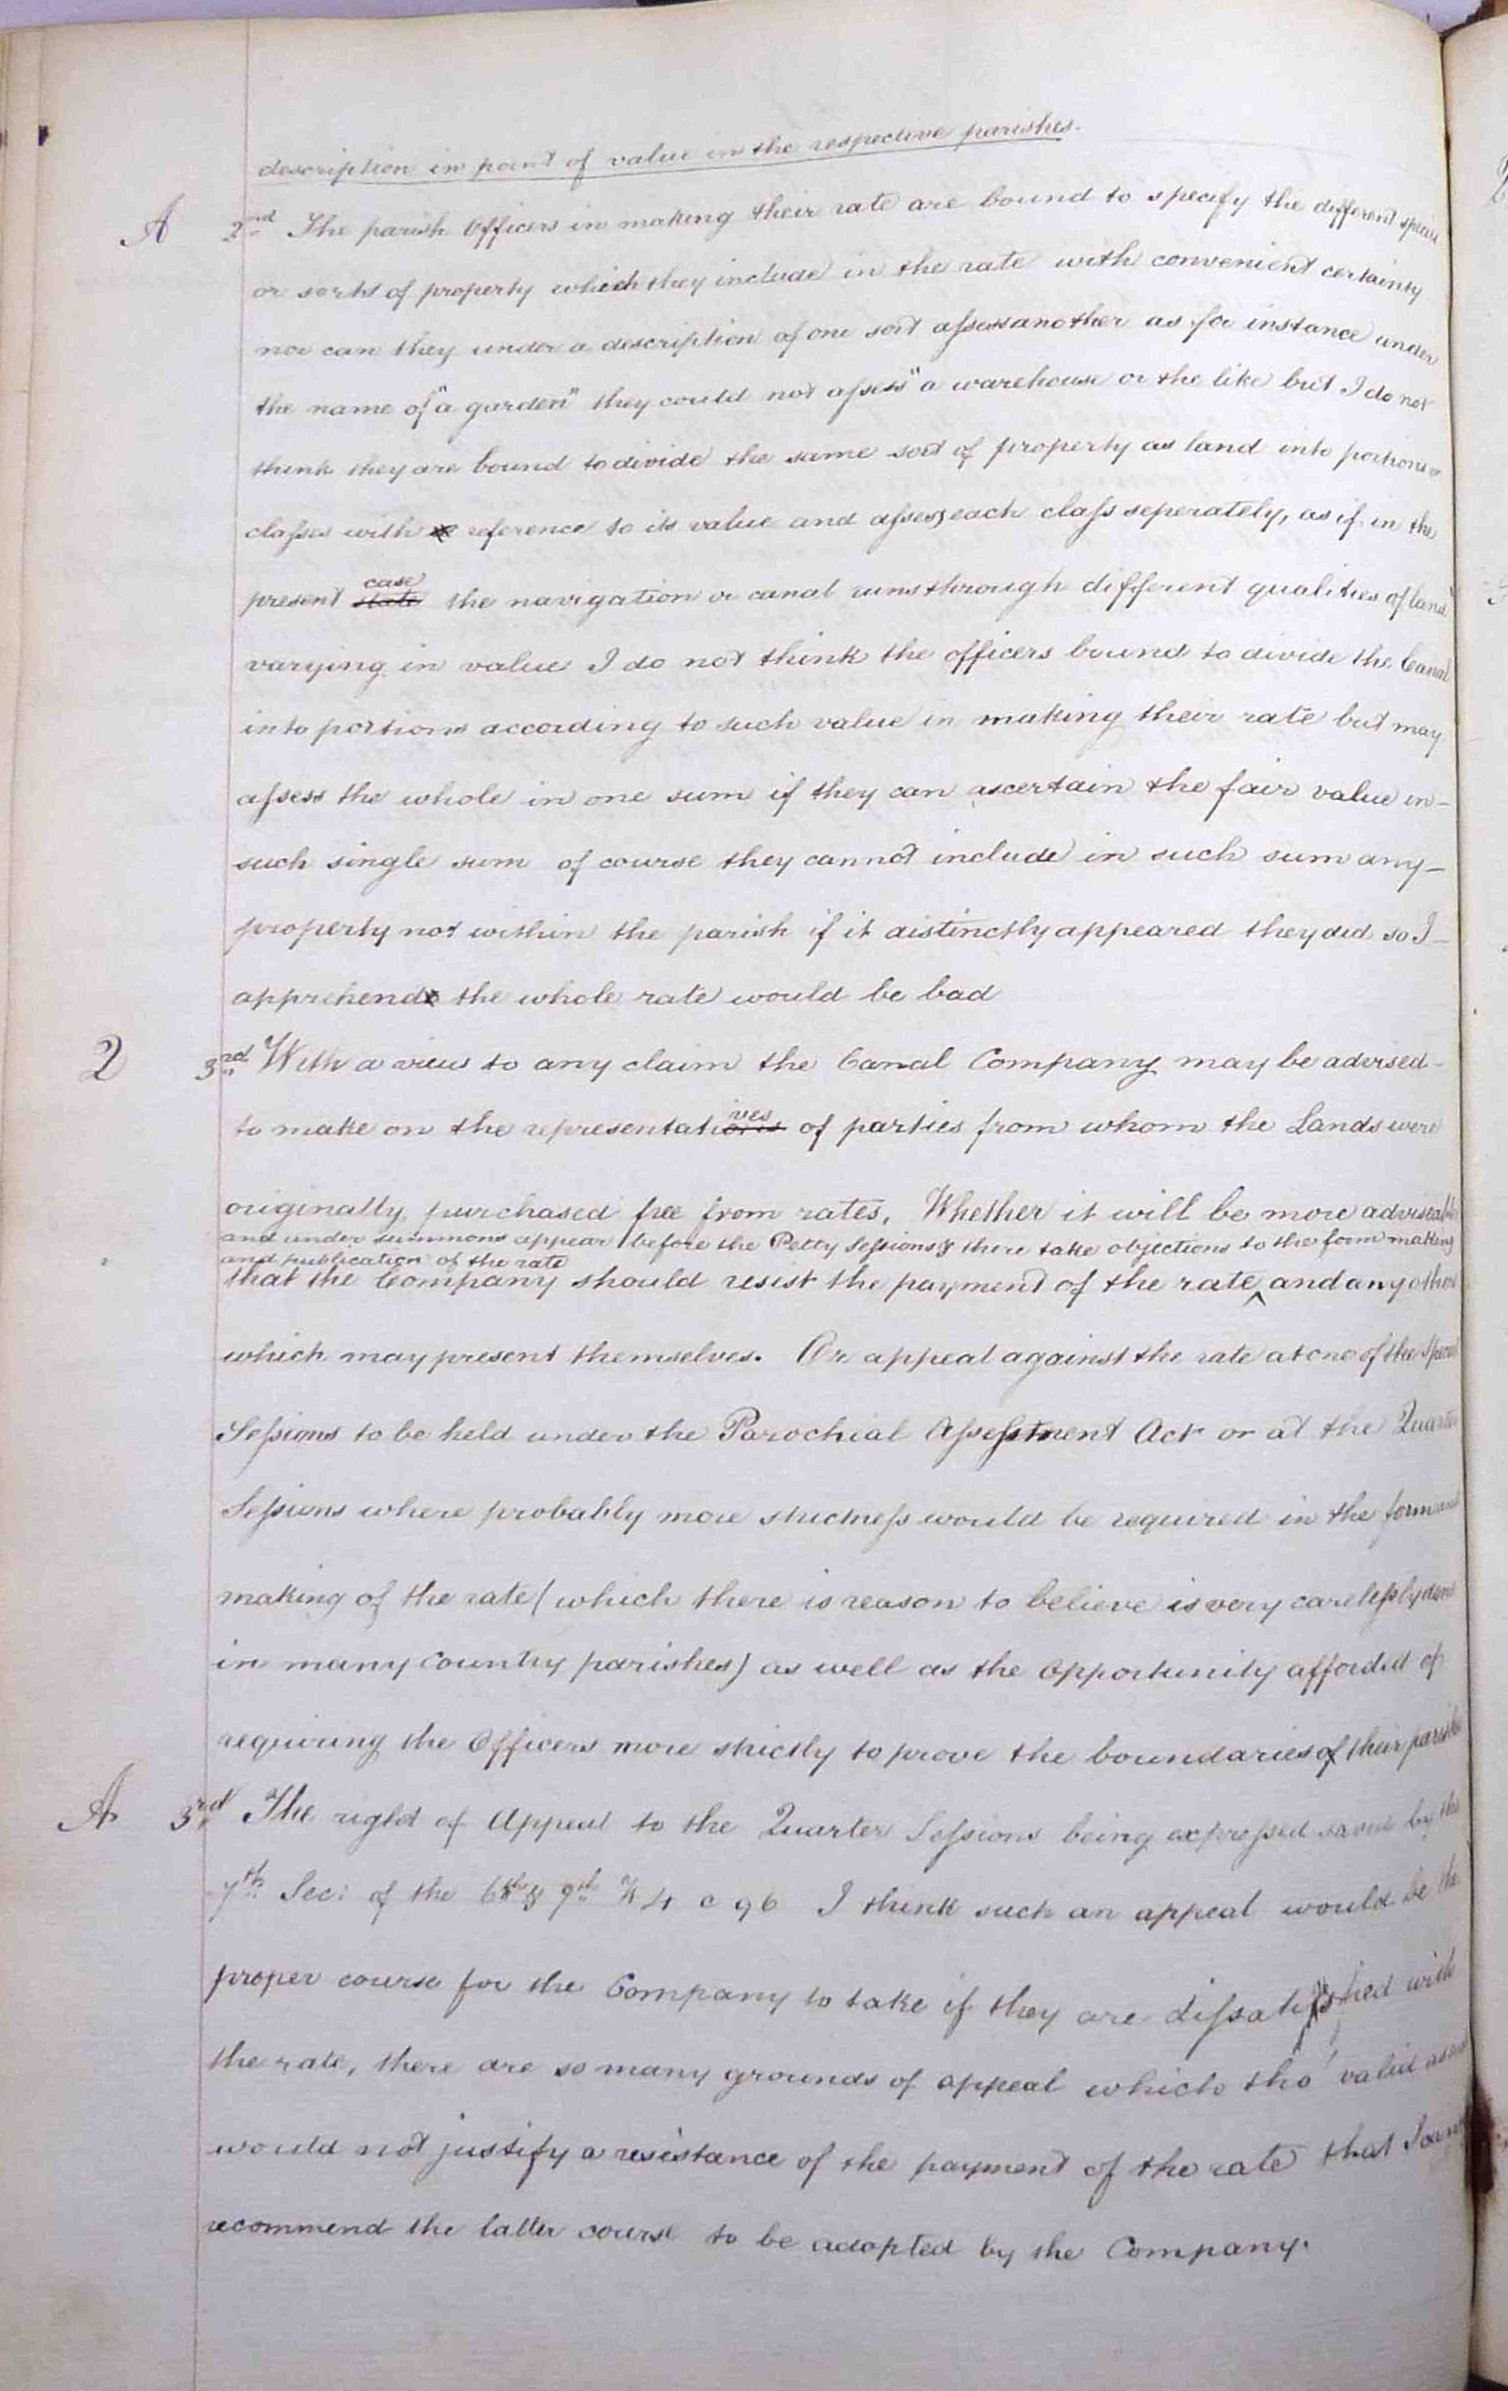 description in point of value in the respective parishes.
A 2nd The parish Officers in making their rate are bound to specify the different species
or sorts of property which they include in the rate with convenient certainty
nor can they under a description of one sort assess another as for instance under
the name of "a garden" they could not assess "a warehouse or the like but I do not
think they are bound to divide the same sort of property as land into portions or
classes with reference to its value and assess each class seperately, as if in the
case
present state the navigation or canal runs through different qualities of land
varying in value I do not think the officers bound to divide the Canal
into portions according to such value in making their rate but may
assess the whole in one sum if they can ascertain the fair value in
such single sum of course they cannot include in such sum any
property not within the parish if it distinctly appeared they did so I
apprehend the whole rate would be bad
2 3rd With a view to any claim the Canal Company may be advised
ves
to make on the representations of parties from whom the Lands were
originally purchased free from rates, Whether it will be more adviseable
and under summons appear before the Petty Sessions & there take objections to the form making
and publication of the rate
that the Company should resist the payment of the rate ^ and any other
which may present themselves. Or appeal against the rate at one of the Special
Sessions to be held under the Parochial Assessment Act or at the Quarter
Sessions where probably more strictness would be required in the form and
making of the rate (which there is reason to believe is very carelessly done
in many country parishes) as well as the opportunity afforded of
requiring the Officers more strictly to prove the boundaries of their parishes
A 3rd The right of Appeal to the Quarter Sessions being expressed saved by the
7th Sec: of the 6th & 7th W 4 c 96 I think such an appeal would be the
proper course for the Company to take if they are dissatisfied with
the rate, there are so many grounds of appeal which tho' valid as such
would not justify a resistance of the payment of the rate that I cannot
recommend the latter course to be adopted by the Company.